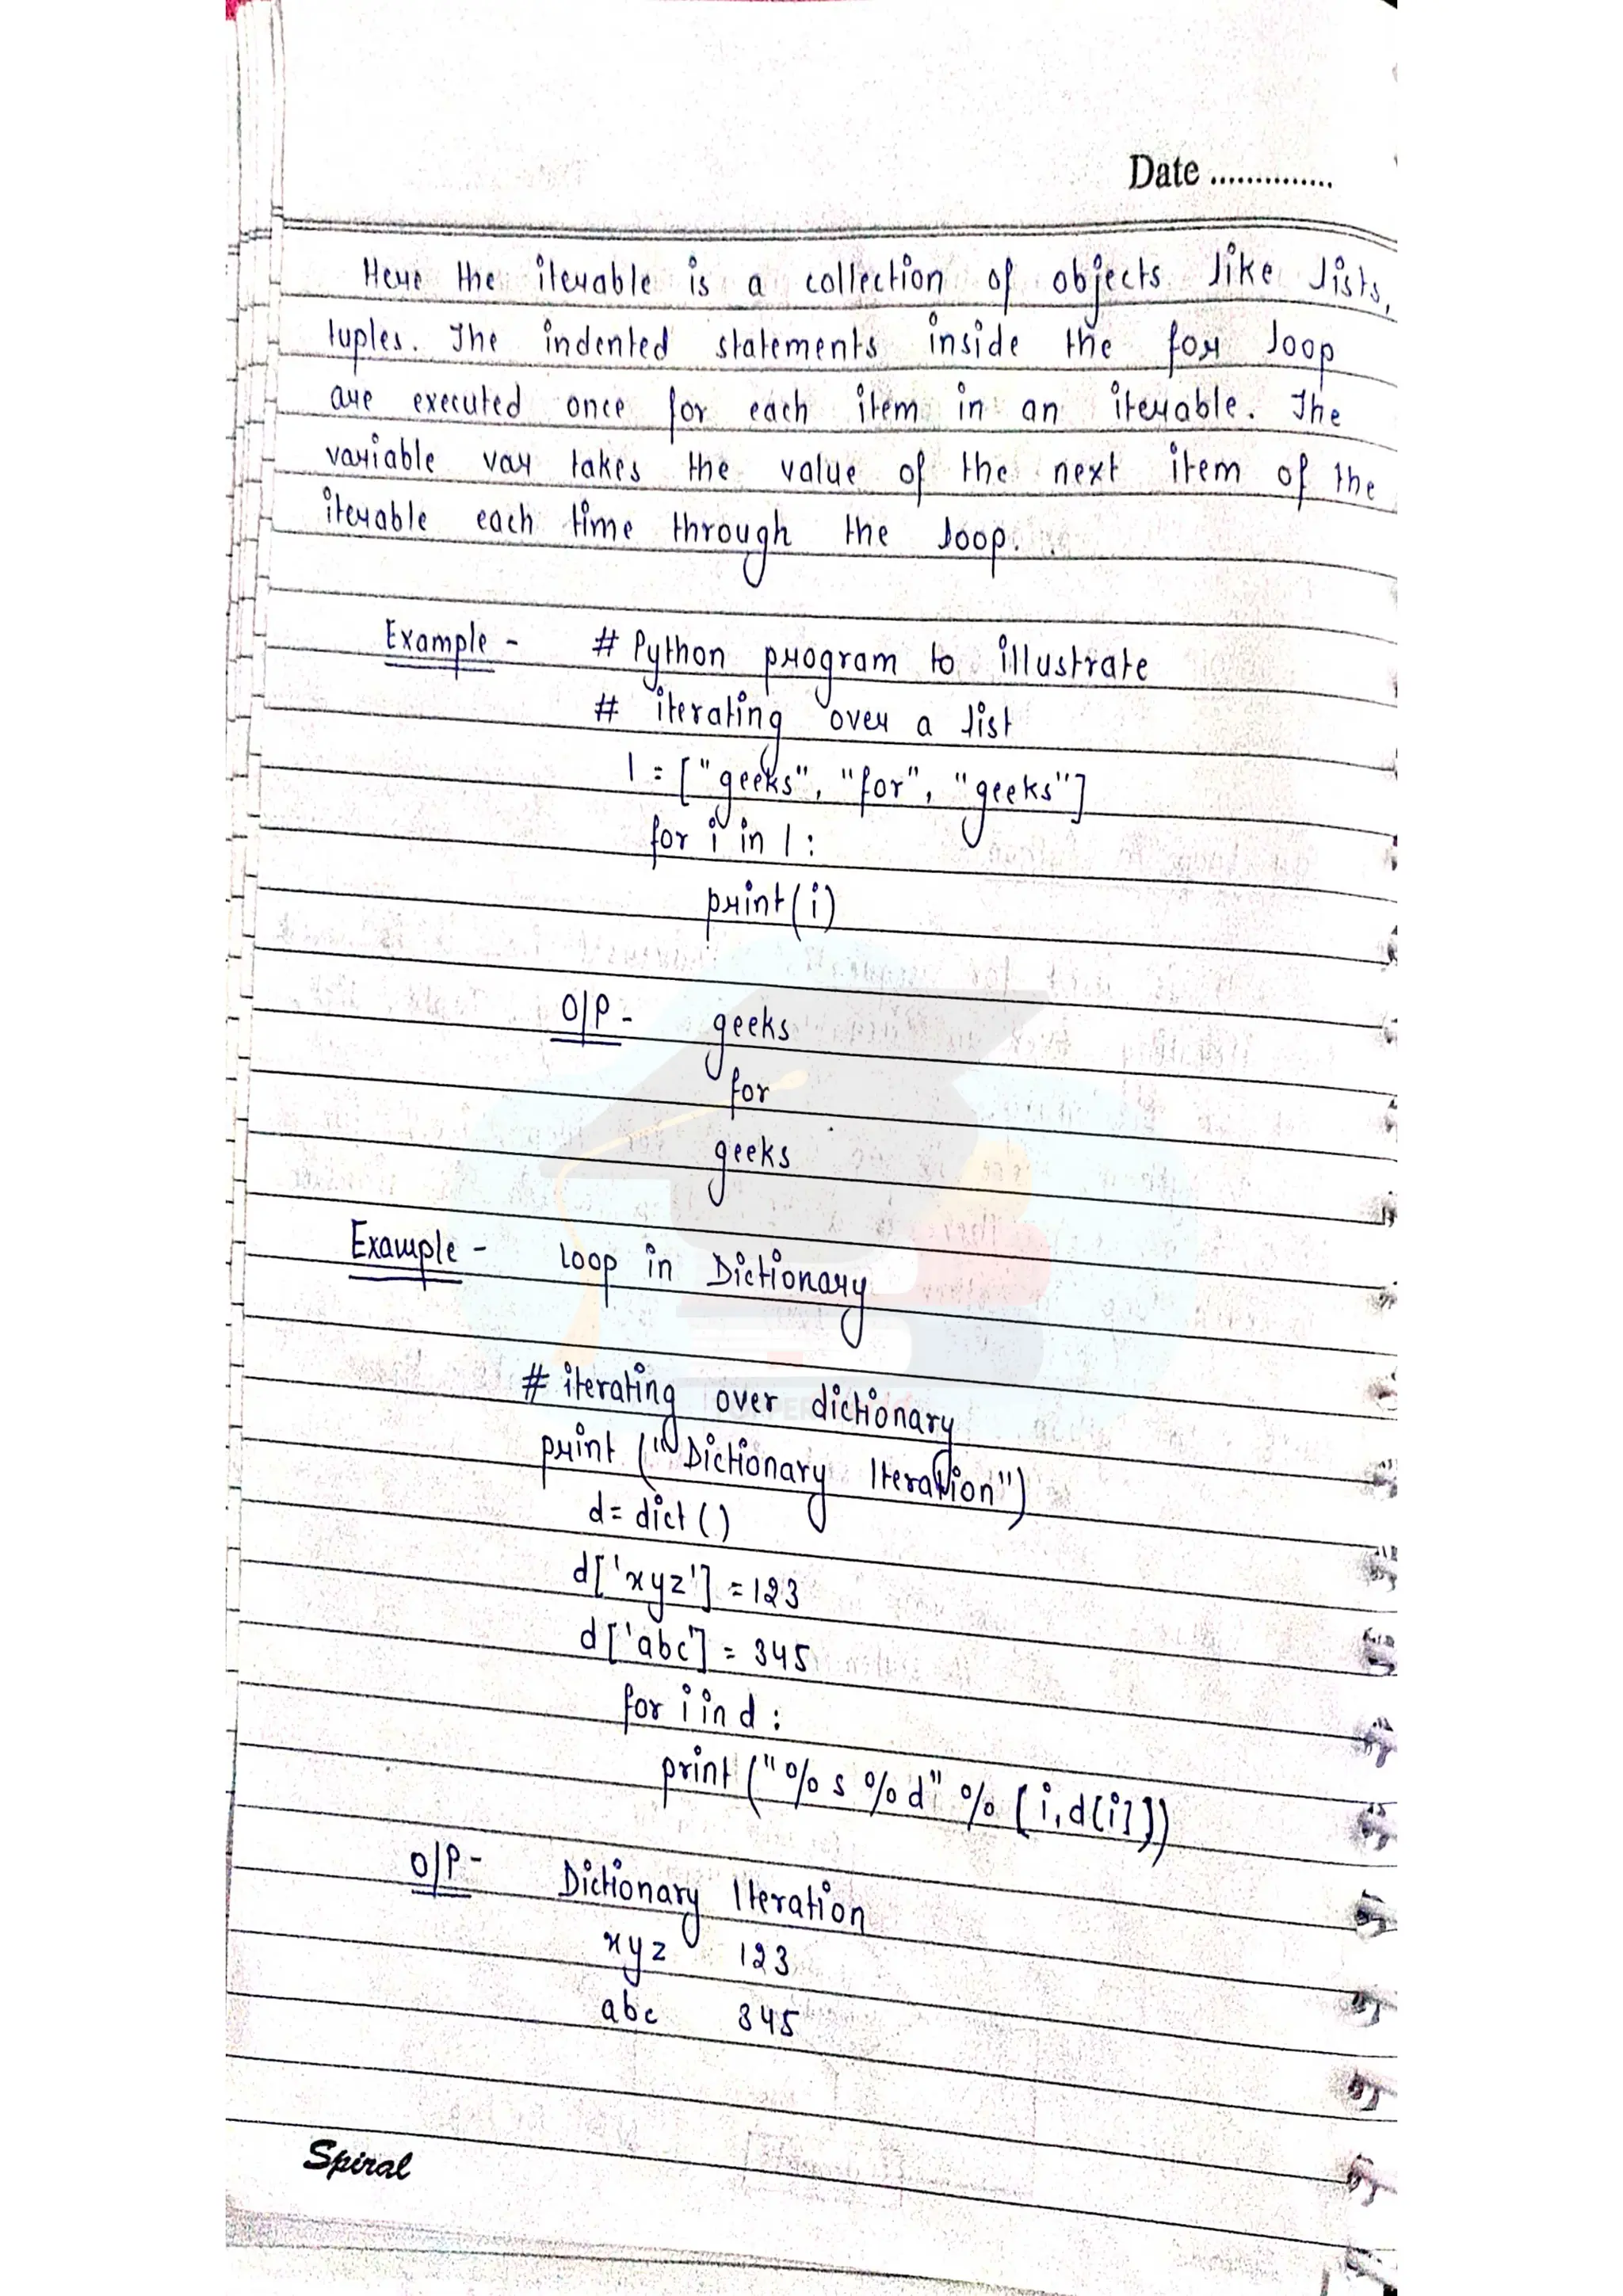 Date ..............
Here the iterable is a collection of objects like lists,
tuples. The indented statements inside the for loop
are executed once for each item in an iterable. The
variable var takes the value of the next item of the
iterable each time through the loop.
Example - # Python program to illustrate
# iterating over a list
l = ["geeks", "for", "geeks"]
for i in l :
print(i)
O/P - geeks
for
geeks
Example - Loop in Dictionary
# iterating over dictionary
print ("Dictionary Iteration")
d = dict ( )
d['xyz'] = 123
d['abc'] = 345
for i in d :
print ("% s % d" % [i, d[i]])
O/P - Dictionary Iteration
xyz 123
abc 345
Spiral